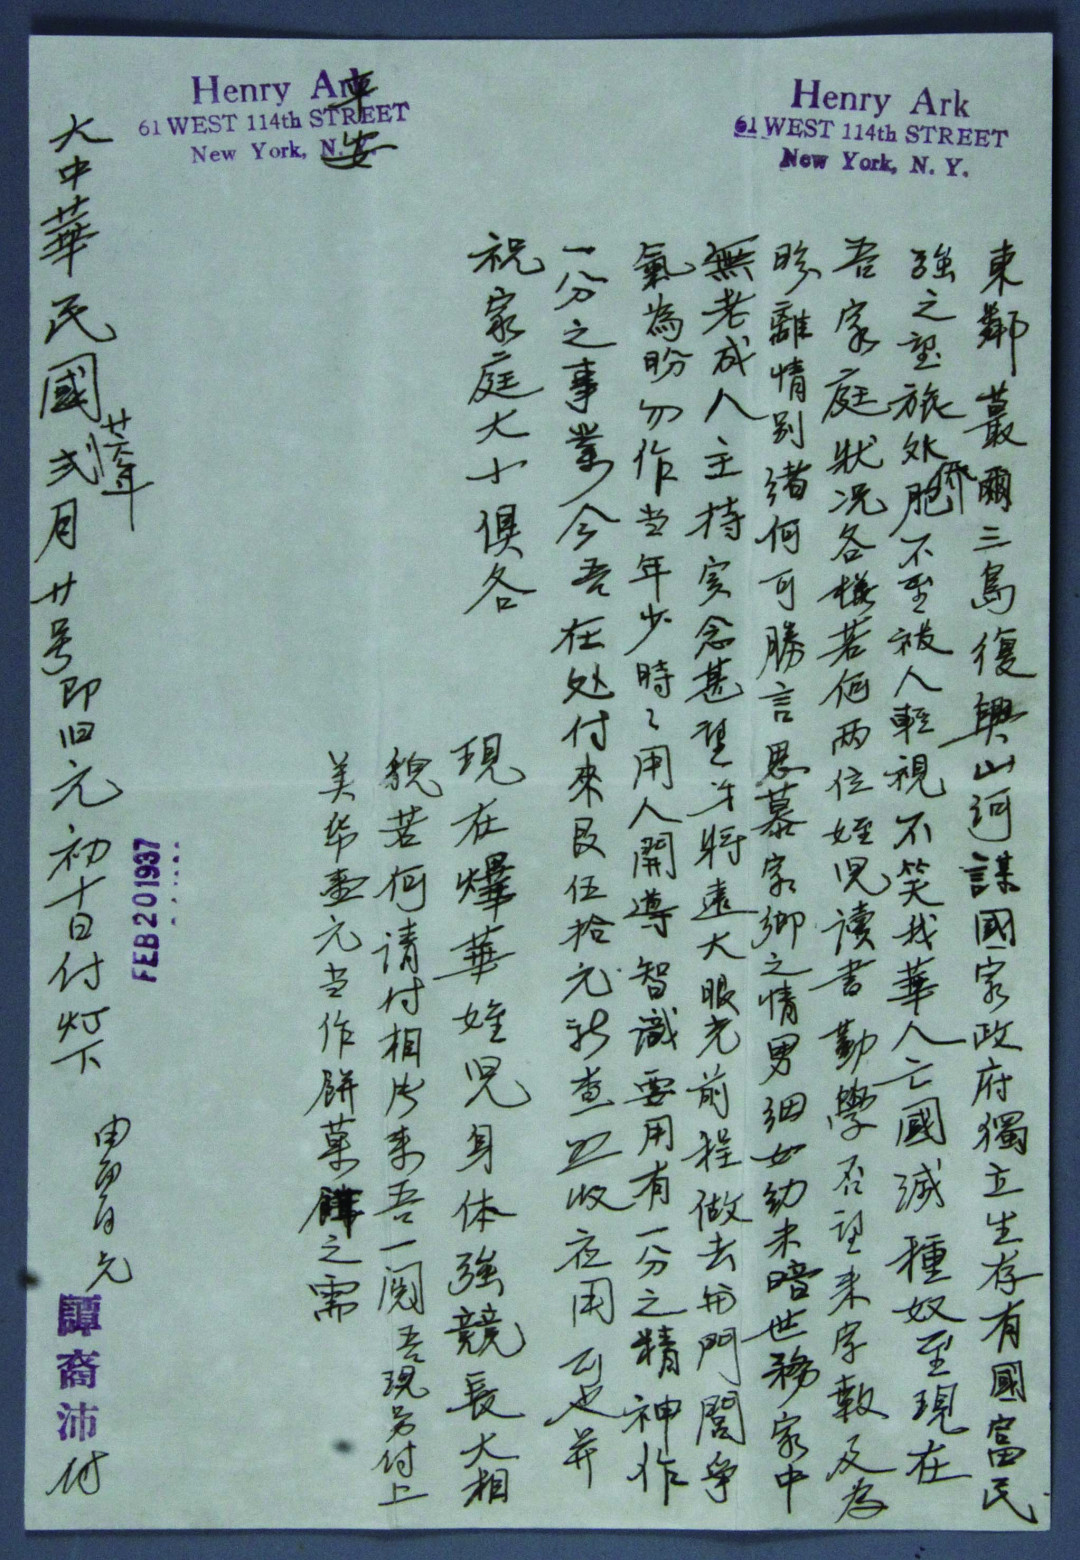 Henry Ark
61 WEST 114th STREET
New York, N. Y.
Henry Ark
61 WEST 114th STREET
New York, N. Y.
東鄰蕞爾三島復興山河謀國家政府獨立生存有國富民
強之望旅外僑胞不至被人輕視不笑我華人亡國滅種奴至現在
吾家庭狀况各樣若何两位姪児读書勤學否望来字報及為
盼離情别緒何可勝言思慕家鄉之情男细女幼未暗世務家中
無老成人主持实念甚望牙將遠大眼光前程做去毋門閭爭
氣為盼勿作当年少時々用人開導智識要用有一分之精神作
一分之事業今吾在处付來艮伍拾元祈查照收应用可也并
祝家庭大小俱各
平安
現在燁華姪児身体強競長大相
貌若何请付相片来吾一阅吾現另付上
美帋壹元当作餅菓之需
大中華民國廿六年弍月廿号即旧元初十日付灯下
FEB 20 1937
由百元
譚裔沛付